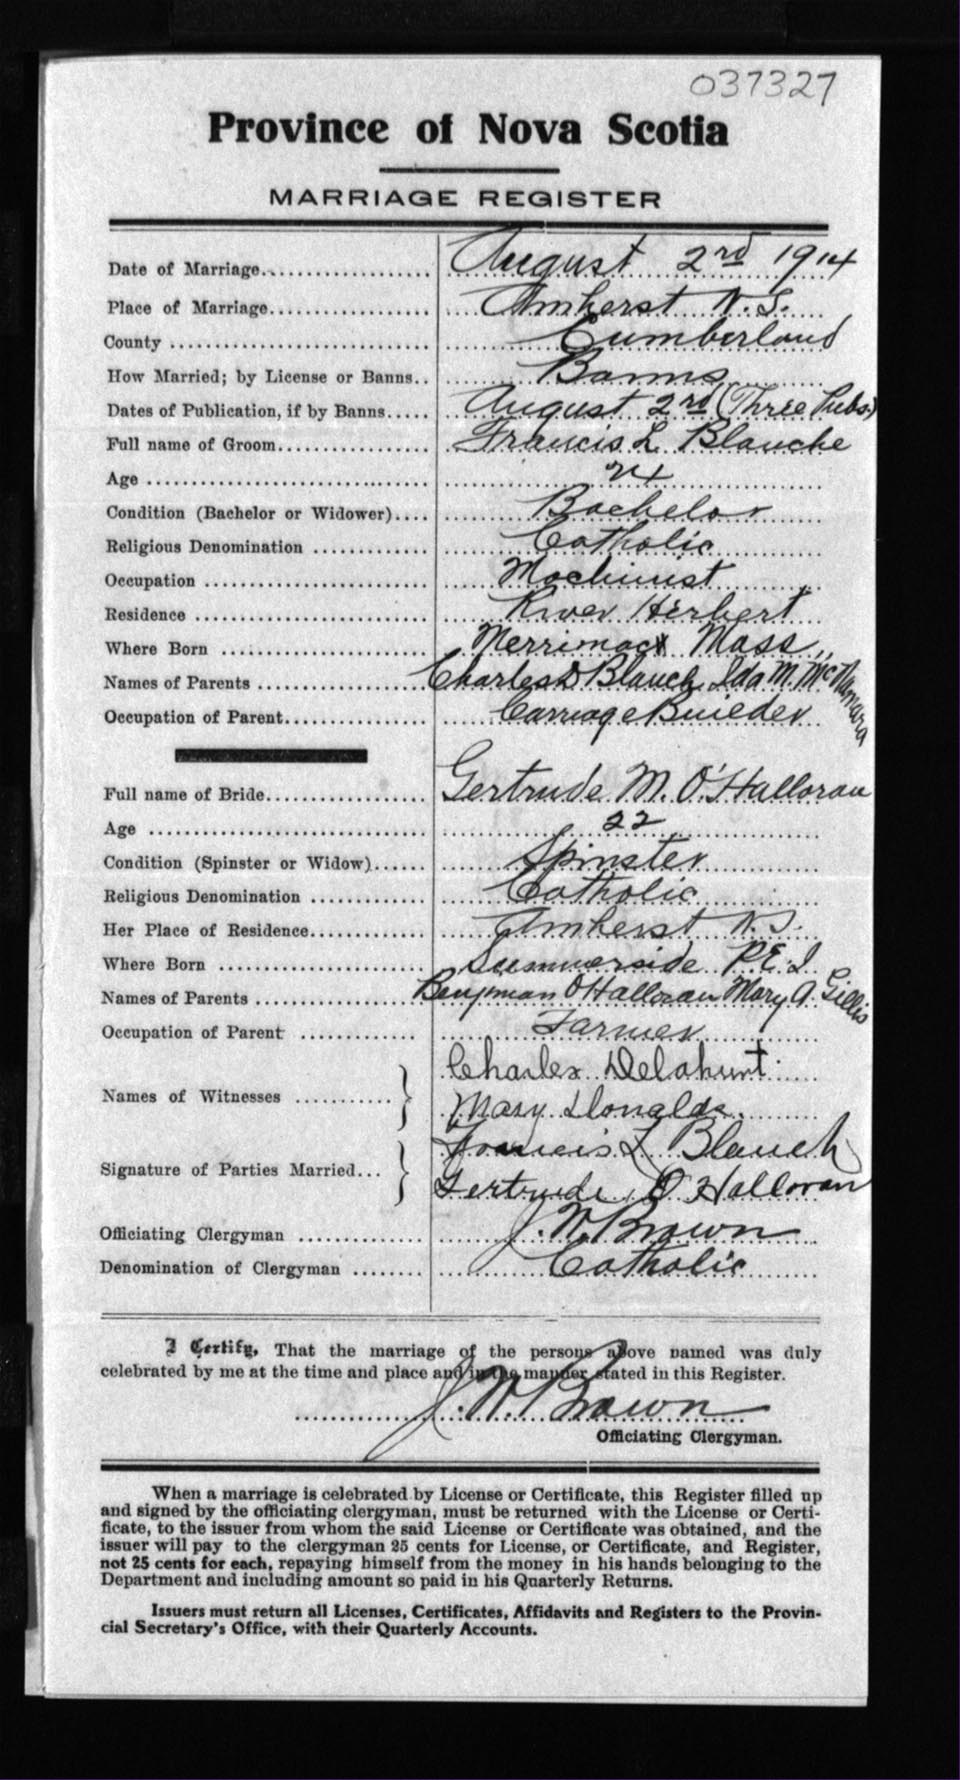 037327
Province of Nova Scotia
MARRIAGE REGISTER
Date of Marriage.................. August 2nd 1914
Place of Marriage................. Amherst N.S.
County ........................... Cumberland
How Married; by License or Banns.. Banns
Dates of Publication, if by Banns..... August 2nd (Three Pubs.)
Full name of Groom................ Francis L. Blanche
Age .............................. 24
Condition (Bachelor or Widower).... Bachelor
Religious Denomination ............ Catholic
Occupation ....................... Machinist
Residence ........................ River Herbert
Where Born ....................... Merrimack Mass.,
Names of Parents ................. Charles D Blanch Ida M. McNamara
Occupation of Parent.............. Carriage Builder
Full name of Bride................ Gertrude M. O'Halloran
Age .............................. 22
Condition (Spinster or Widow)...... Spinster
Religious Denomination ............ Catholic
Her Place of Residence............ Amherst N.S.
Where Born ....................... Summerside P.E.I.
Names of Parents ................. Benjman O'Halloran Mary A. Gillis
Occupation of Parent ............. Farmer
Names of Witnesses ............ } Charles Delahunt
Mary Donalds.
Signature of Parties Married... } Francis L Blanch
Gertrude O'Halloran
Officiating Clergyman ............. J. W. Brown
Denomination of Clergyman ........ Catholic
I Certify, That the marriage of the persons above named was duly
celebrated by me at the time and place and in the manner stated in this Register.
J. W. Brown
Officiating Clergyman.
When a marriage is celebrated by License or Certificate, this Register filled up
and signed by the officiating clergyman, must be returned with the License or Certi-
ficate, to the issuer from whom the said License or Certificate was obtained, and the
issuer will pay to the clergyman 25 cents for License, or Certificate, and Register,
not 25 cents for each, repaying himself from the money in his hands belonging to the
Department and including amount so paid in his Quarterly Returns.
Issuers must return all Licenses, Certificates, Affidavits and Registers to the Provin-
cial Secretary's Office, with their Quarterly Accounts.